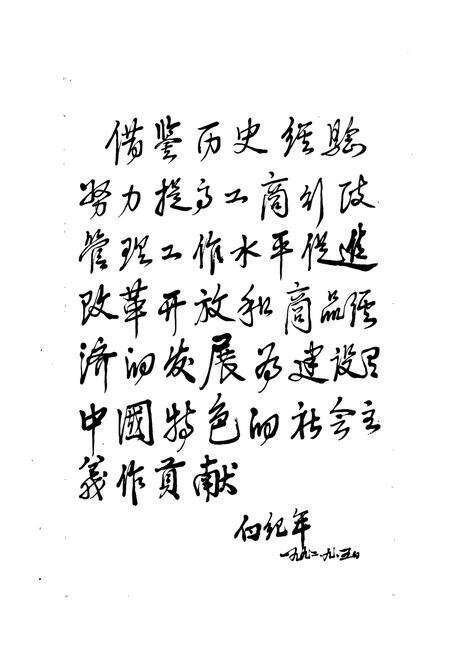 借鉴历史经验
努力提高工商行政
管理工作水平促进
改革开放和商品经
济的发展为建设具
中國特色的社会主
義作贡献
白纪年
一九九二.九.五日